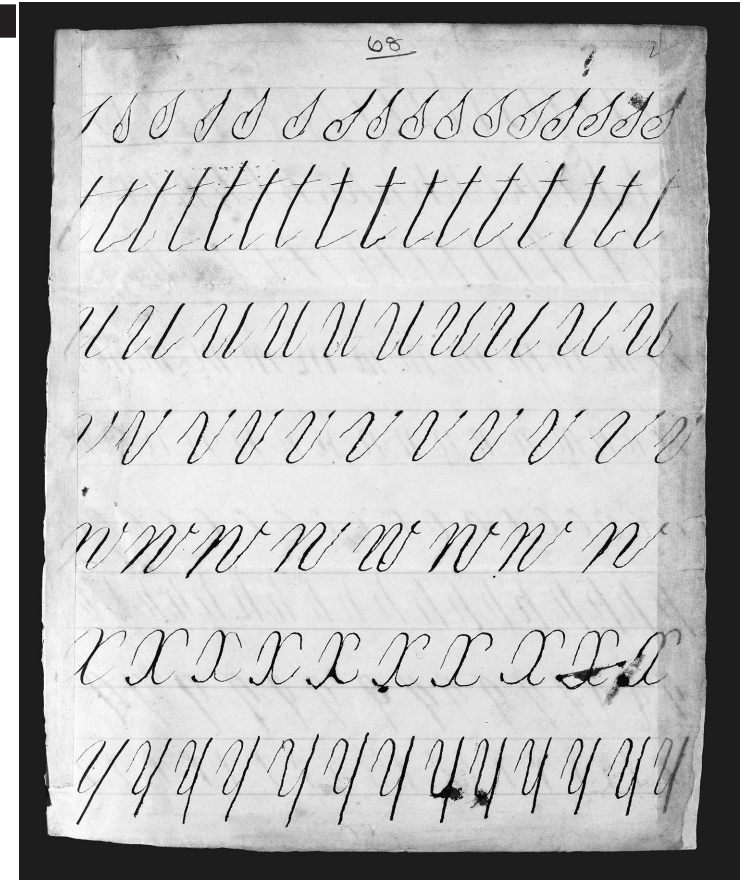 68
s s s s s s s s s s s s s s s s
t t t t t t t t t t t t t t t t
u u u u u u u u u u
v v v v v v v v v v v
w w w w w w w w
x x x x x x x x x x
y y y y y y y y y y y y y